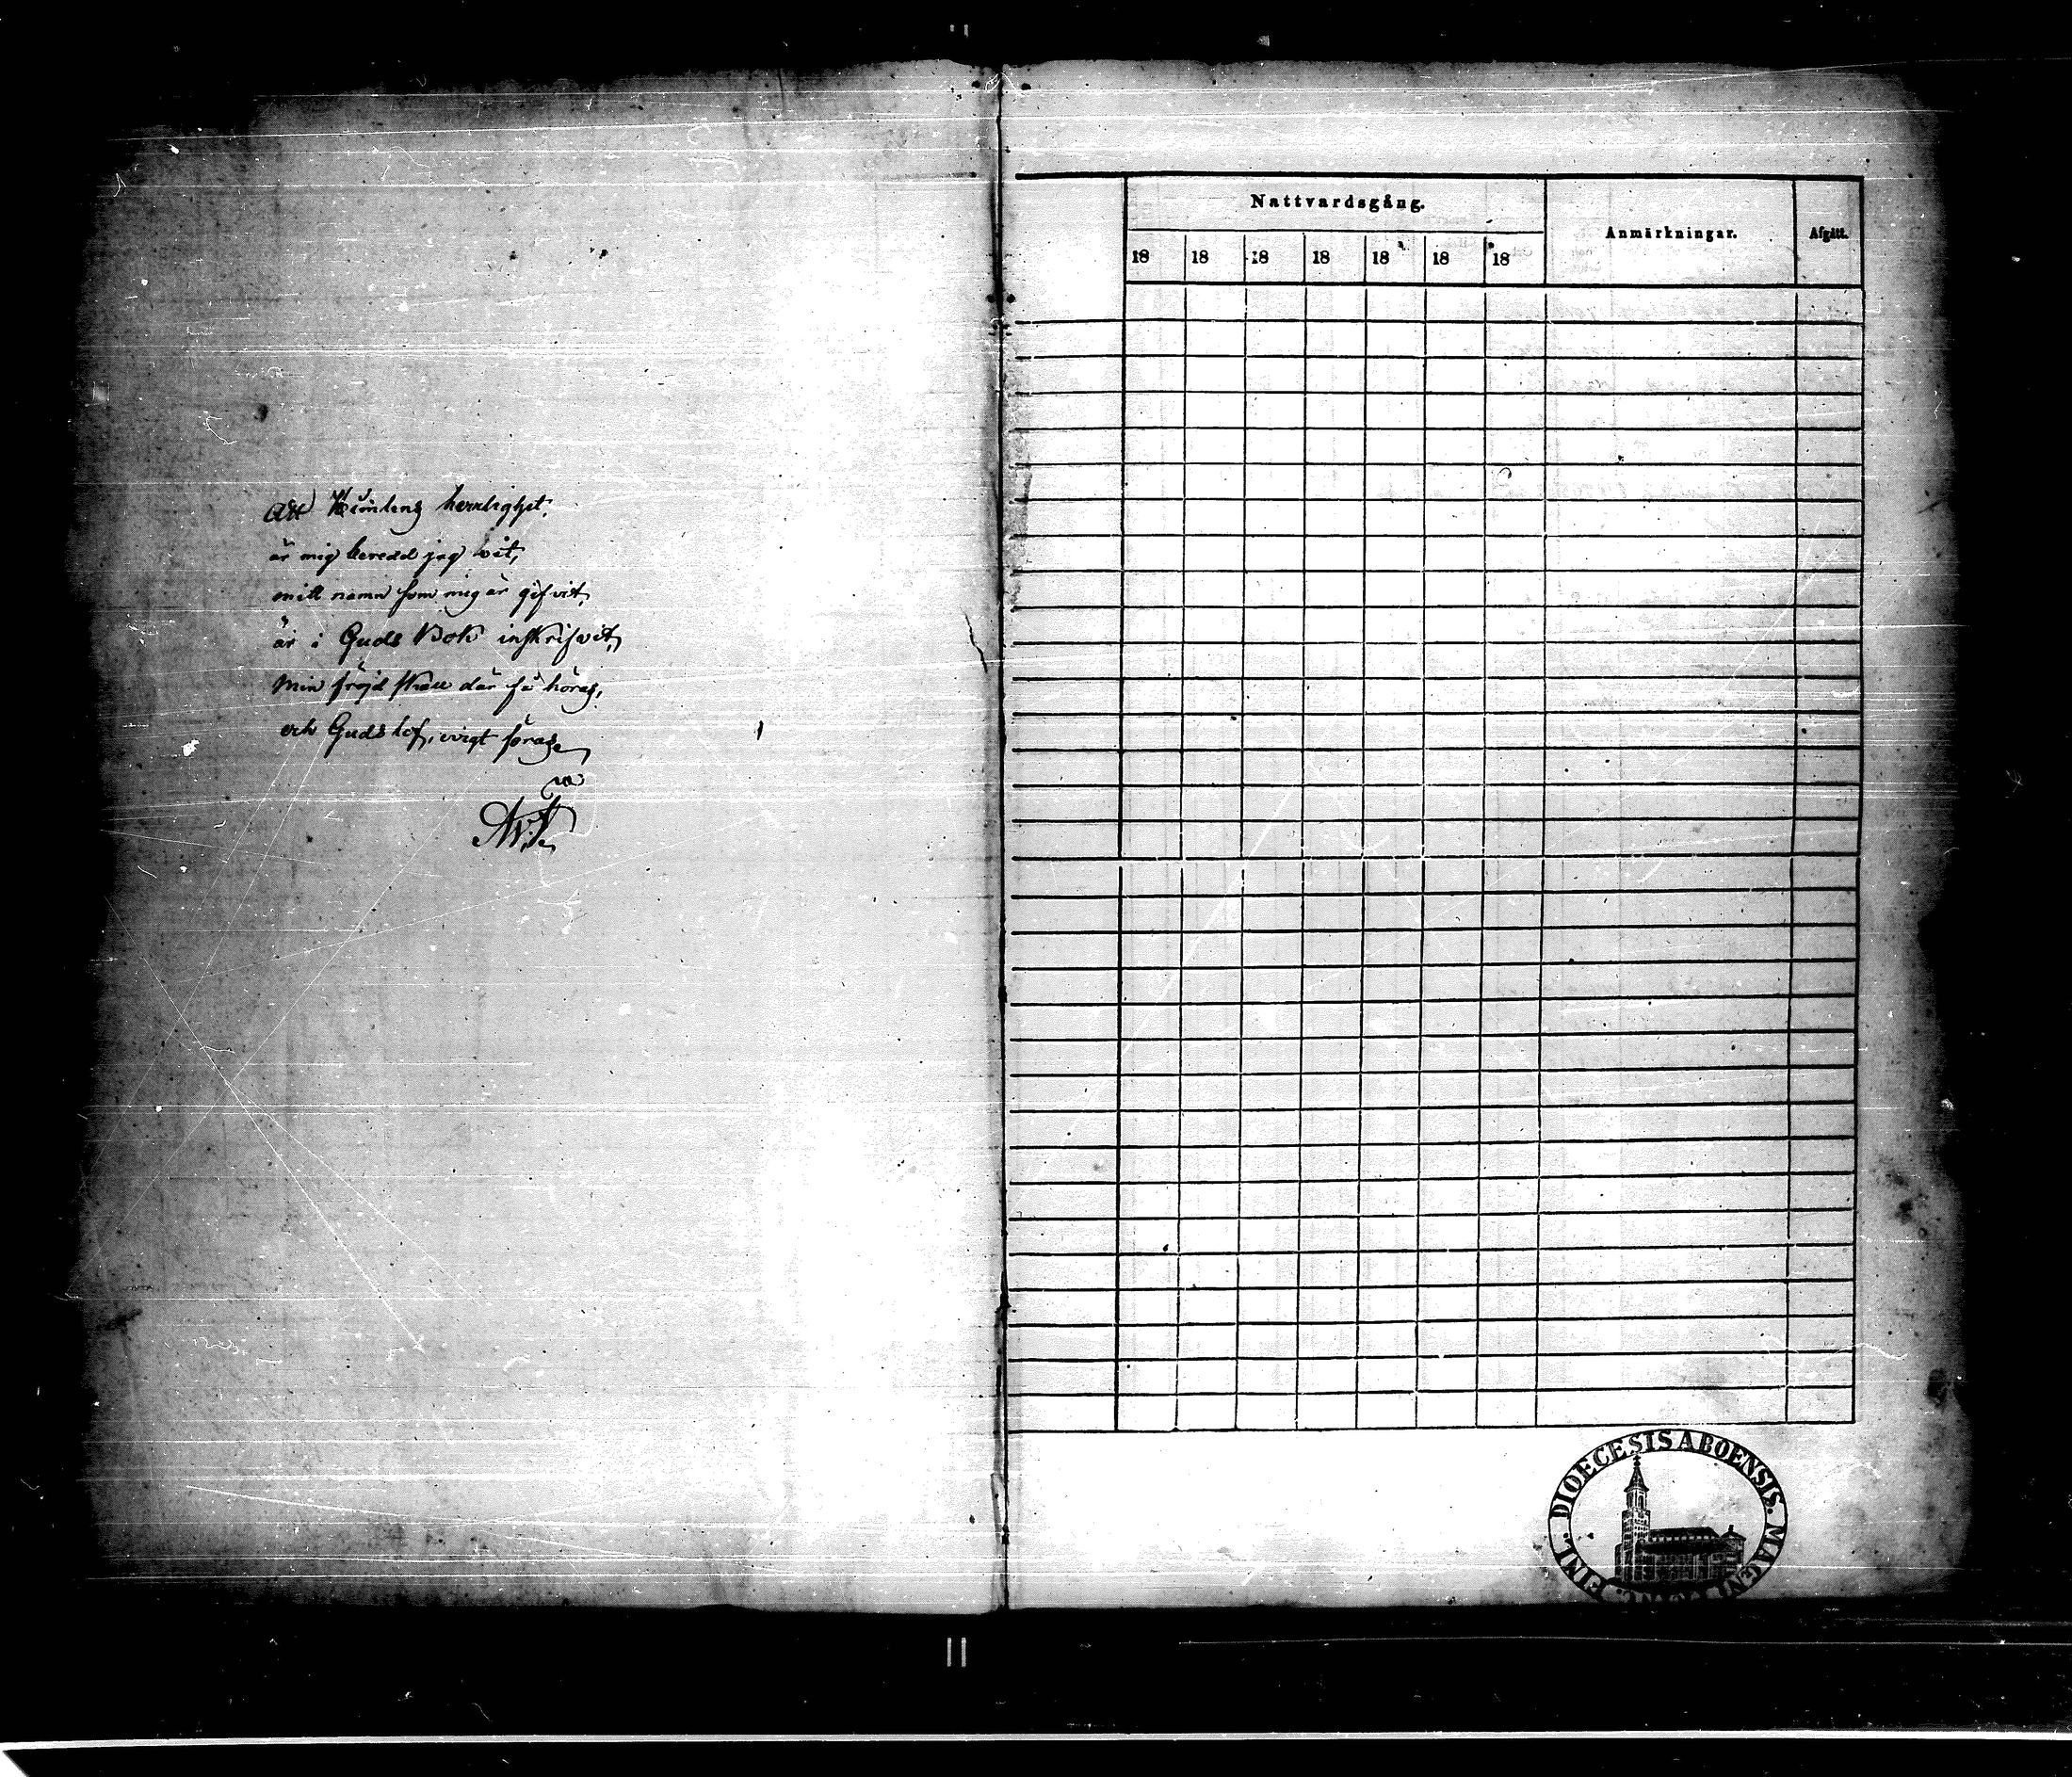 Att Himlens herrlighet,
är mig beredd jag vet,
mitt namn som mig är gifvit,
är i Guds Bok inskrifvit,
Min fröjd skall där få höras,
och Guds lof, evigt föras
Nattvardsgång.
Anmärkningar.
Afgått.
18 18 18 18 18 18 18
DIOECESIS ABOENSIS. MAGNI FINL.